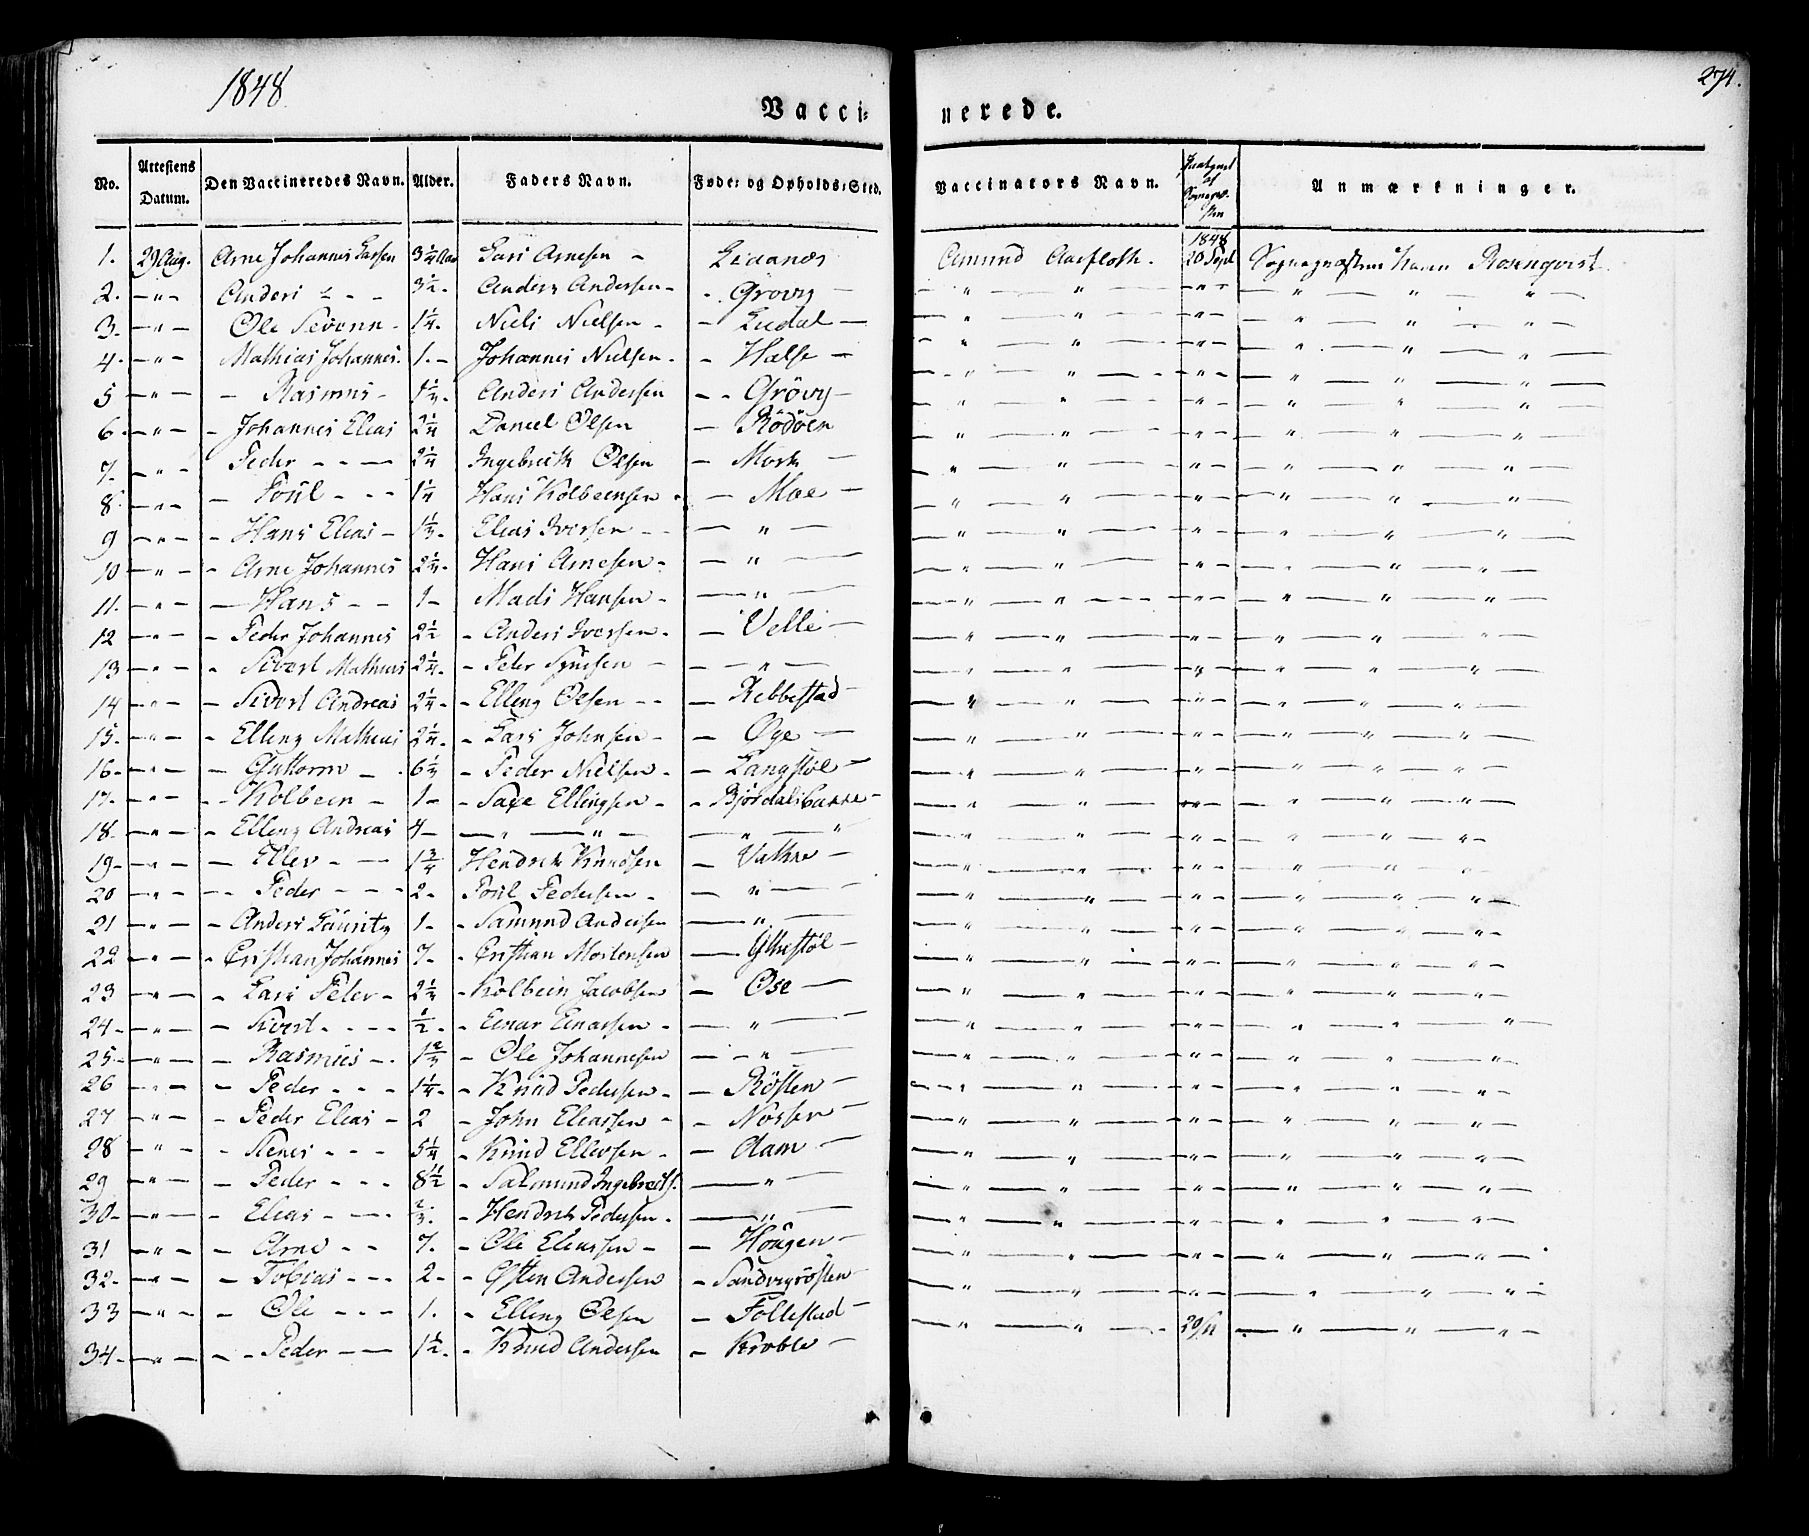 1848
274.
Vacci= nerede.
No. Attestens Datum. Den Vaccineredes Navn. Alder. Faders Navn. Føde= og Opholds=Sted. Vaccinators Navn. Anmærkninger.
1. 29 Aug. Arne Johannes Larsen 3 1/4 Aar Lars Arnesen - Lianæs Amund Aarfloth. 1848 20 Sept Sognepræsten Rosenqvist
2. - " - Anders - - 3 1/2 - Anders Andersen - - Grøvig - - " - " - - " - - " - " - " -
3. - " - Ole Severin - 1 1/4 - Niels Nielsen - - Lædal - - " - " - - " - - " - " - " -
4. - " - Mathias Johannes. 1. - Johannes Nielsen - - Halse - - " - " - - " - - " - " - " -
5 - " - - Rasmus - 1 1/2 - Anders Andersen - - Grövig - - " - " - - " - - " - " - " -
6. - " - - Johannes Elias 2 1/4 Daniel Olsen - Rödöen - " - " - - " - - " - " - " -
7. - " - - Peder - - - 2 1/4 Ingebreth Olsen - Mork - - " - " - - " - - " - " - " -
8. - " - - Poul - - - 1 1/4 Hans Kolbeensen - - Moe - - " - " - - " - - " - " - " -
9 - " - - Hans Elias - 1 1/3 - Elias Iversen - - - " - - " - " - - " - - " - " - " -
10 - " - - Arne Johannes 2 1/4 - Hans Arnesen - - " - - " - " - - " - - " - " - " -
11. - " - - Hans - - 1 - Mads Hansen - - " - - " - " - - " - - " - " - " -
12 - " - - Peder Johannes 2 1/2 - Anders Iversen - - Velle - - " - " - - " - - " - " - " -
13 - " - - Sivert Mathias 2 1/4 - - Peter Synesen - - - " - - " - " - - " - - " - " - " -
14 - " - - Sivert Andreas 2 1/4 - - Elling Olsen - - - Rebbestad - - " - " - - " - - " - " - " -
15. - " - - Elling Mathias 2 1/4 - - Lars Johnsen - - Øye - - " - " - - " - - " - " - " -
16. - " - - Guttorm - 6 1/2 - Peder Nielsen - - Langstøl - - " - " - - " - - " - " - " -
17. - " - - Kolbein - 1 - - Saxe Ellingsen - - Bjørdalsbakke - - " - " - - " - - " - " - " -
18. - " - - Elling Andreas 4 - - " - " - - " - " - " - " - - " - - " - " - " -
19 - " - - Ellev - - 1 3/4 Hendrik Knudsen - Vatne - - " - " - - " - - " - " - " -
20 - " - - Peder - - - 2 - Poul Pedersen - - " - - " - " - - " - - " - " - " -
21 - " - - Anders Lauritz 1 - - Samund Andersen - " - - " - " - - " - - " - " - " -
22 - " - - Cristian Johannes 7 - - Cristian Mortensen - - " - " - - " - - " - " - " -
23 - " - - Lars Peter - 2 1/2 - Kolbein Jacobsen - Øse - - " - " - - " - - " - " - " -
24 - " - - Sivert - - - 1/2 - - Einar Einarsen - - " - - " - " - - " - - " - " - " -
25 - " - - Rasmus - - 1 2/3 - Ole Johannesen - - " - - " - " - - " - - " - " - " -
26 - " - - Peder - - - 1 1/4 - - Knud Pedersen - - Rösten - - " - " - - " - - " - " - " -
27 - " - - Peder Elias - 2 - John Eliassen - - - " - " - - " - - " - " - " -
28 - " - - Stenes - - - 5 1/4 - Knud Ellevsen - - Aam - - " - " - - " - - " - " - " -
29 - " - - Peder - - - 8 1/2 - Salmund Ingebretsf. - " - - " - " - - " - - " - " - " -
30 - " - - Elias - - 2/3. - Hendrik Pedersen - - " - - " - " - - " - - " - " - " -
31 - " - - Arne - - 7. - Ole Eliassen - - Hougen - - " - " - - " - - " - " - " -
32 - " - - Tobias - - - 2 - - Østen Andersen - Sandvigrösten - " - " - - " - - " - " - " -
33 - " - - Ole - - - 1. - Elling Olsen - Follestad - - " - " - 20/11 - " - " - " -
34 - " - - - Peder - - 1 1/2 - - Knud Andersen - Krøvle -